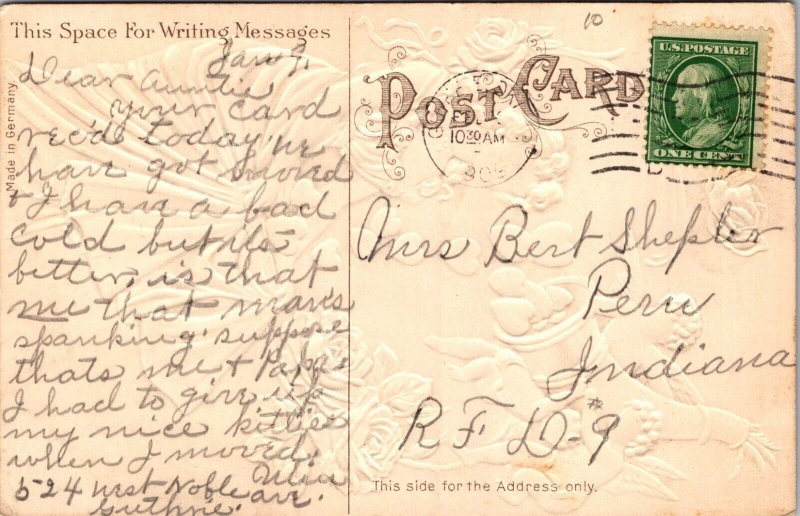 This Space For Writing Messages
Jan 9.
Dear Auntie
your card
recd today we
have got moved
+ I have a bad
cold but its
better, is that
me that mans
spanking suppose
thats me + Papa
I had to give up
my nice kitties
when I moved.
524 West Noble ave.
Guthrie.
Made in Germany
POST CARD
10
10 30 AM
U.S. POSTAGE
ONE CENT
Mrs Bert Shepler
Peru
Indiana
R F D-9
This side for the Address only.